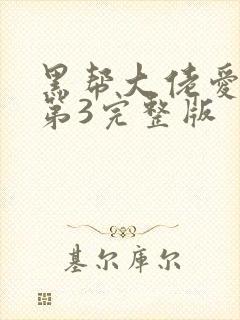 黑帮大佬爱
第3完整版
基尔库尔